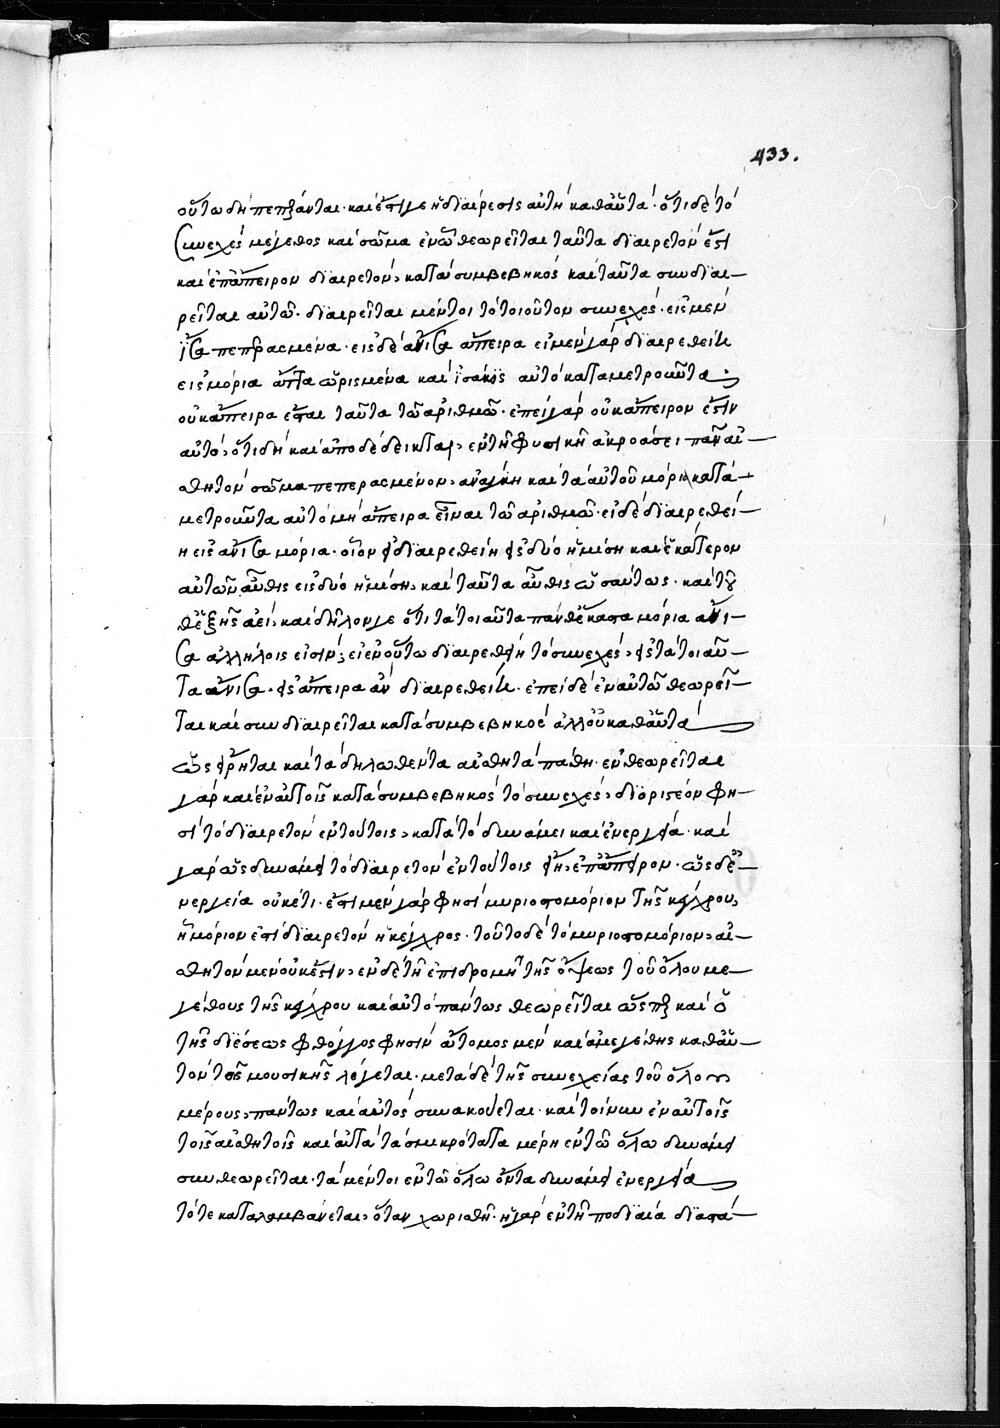 433.
οὕτω δὴ πεπέρανται· καὶ ἔστι γε ἡ διαίρεσις αὐτὴ καθ' αὑτά· ὅτι δὲ τὸ
συνεχὲς μέγεθος καὶ σῶμα ἐν ᾧ θεωρεῖται ταῦτα διαιρετόν ἐστι
καὶ ἐπ' ἄπειρον διαιρετόν, κατὰ συμβεβηκὸς καὶ ταῦτα συνδιαι-
ρεῖται αὐτῷ· διαιρεῖται μέντοι τὸ τοιοῦτον συνεχές· εἰς μὲν
ἴσα πεπερασμένα· εἰς δὲ ἄνισα ἄπειρα εἰ μὲν γὰρ διαιρεθείη
εἰς μόρια ἄττα ὡρισμένα καὶ ἰσάκις αὐτὸ καταμετροῦντα·
οὐκ ἄπειρα ἔσται ταῦτα τῷ ἀριθμῷ· ἐπεὶ γὰρ οὐκ ἄπειρόν ἐστιν
αὐτό, ὅτι δὴ καὶ ἀποδέδεικται, ἐν τῇ φυσικῇ ἀκροάσει πᾶν αἰ-
σθητὸν σῶμα πεπερασμένον, ἀνάγκη καὶ τὰ αὐτοῦ μόρια κατα-
μετροῦντα αὐτὸ μὴ ἄπειρα εἶναι τῷ ἀριθμῷ· εἰ δὲ διαιρεθεί-
η εἰς ἄνισα μόρια· οἷον εἰ διαιρεθείη εἰς δύο ἡμίση καὶ ἑκάτερον
αὐτῶν αὖθις εἰς δύο ἡμίση, καὶ ταῦτα αὖθις ὡσαύτως· καὶ τοῦ
θ' ἑξῆς ἀεί, καὶ δῆλόν γε ὅτι τὰ τοιαῦτα πάνθ' ἕκαστα μόρια ἄνι-
σα ἀλλήλοις εἰσίν, εἰ ἐν οὕτω διαιρεθῇ τὸ συνεχές, εἰς τὰ τοιαῦ-
τα ἄνισα· εἰς ἄπειρα ἂν διαιρεθείη· ἐπεὶ δὲ ἐν αὐτῷ θεωρεῖ-
ται καὶ συνδιαιρεῖται κατὰ συμβεβηκὸς ἀλλ' οὐ καθ' αὑτὰ
ὡς εἴρηται καὶ τὰ δηλωθέντα αἰσθητὰ πάθη· ἐνθεωρεῖται
γὰρ καὶ ἐν αὐτοῖς κατὰ συμβεβηκὸς τὸ συνεχές, διοριστέον φη-
σὶ τὸ διαιρετὸν ἐν τούτοις, κατὰ τὸ δυνάμει καὶ ἐνεργείᾳ· καὶ
γὰρ ὡς δυνάμει τὸ διαιρετὸν ἐν τούτοις εἴη, ἐπ' ἄπειρον· ὡς δ' ἐ-
νεργείᾳ οὐκέτι· ἔστι μὲν γὰρ φησὶ μυριοστομόριον τῆς κέγχρου,
ἢ μόριον ἔτι διαιρετὸν ἡ κέγχρος· τοῦτο δὲ τὸ μυριοστομόριον, αἰ-
σθητὸν μὲν οὐκ ἔστιν, ἐν δὲ τῇ ἐπιδρομῇ τῆς ὄψεως τοῦ ὅλου με-
γέθους τῆς κέγχρου καὶ αὐτὸ πάντως θεωρεῖται ὥσπερ καὶ ὁ
τῆς διέσεως φθόγγος φησὶν ἄτομος μὲν καὶ ἀμεγέθης καθ' αὑ-
τὸν τῆς μουσικῆς λέγεται· μετὰ δὲ τῆς συνεχείας τοῦ ὅλου
μέρους, πάντως καὶ αὐτὸς συνακούεται· καὶ τοίνυν ἐν αὐτοῖς
τοῖς αἰσθητοῖς καὶ αὐτὰ τὰ σμικρότατα μέρη ἐν τῷ ὅλῳ δυνάμει
συνθεωρεῖται· τὰ μέντοι ἐν τῷ ὅλῳ ὄντα δυνάμει ἐνεργείᾳ
τότε καταλαμβάνεται, ὅταν χωρισθῇ· ἡ γὰρ ἐν τῇ ποδιαίᾳ διαστά-